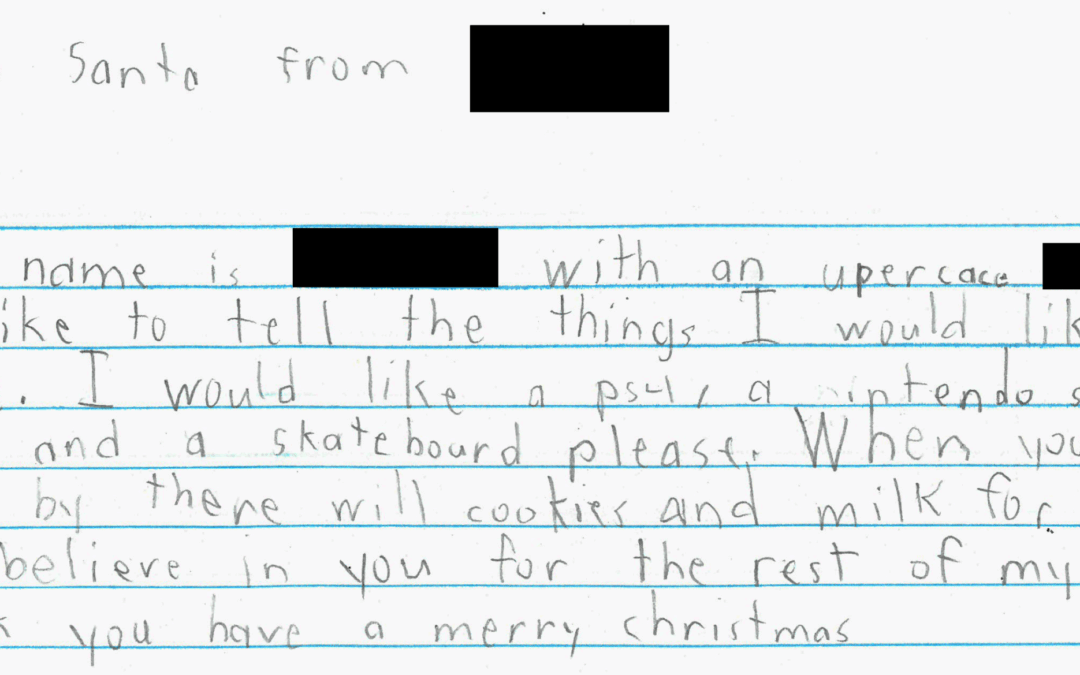 Santa from
name is with an upercace
ike to tell the things I would lik
. I would like a ps4, a nintendo s
and a skateboard please. When you
by there will cookies and milk for
believe in you for the rest of my
you have a merry christmas